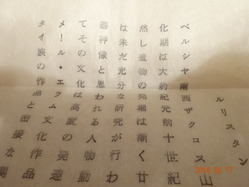 ルリスタン
ペルシヤ南西ザクロス山
化期は大約紀元前十世紀
然し遺物の発掘は漸く廿
は未だ充分な研究が行わ
器神像と思われる人物動
てその文化は高度の発達
メール・エラム文化作品
タイ族の作品と密接な関